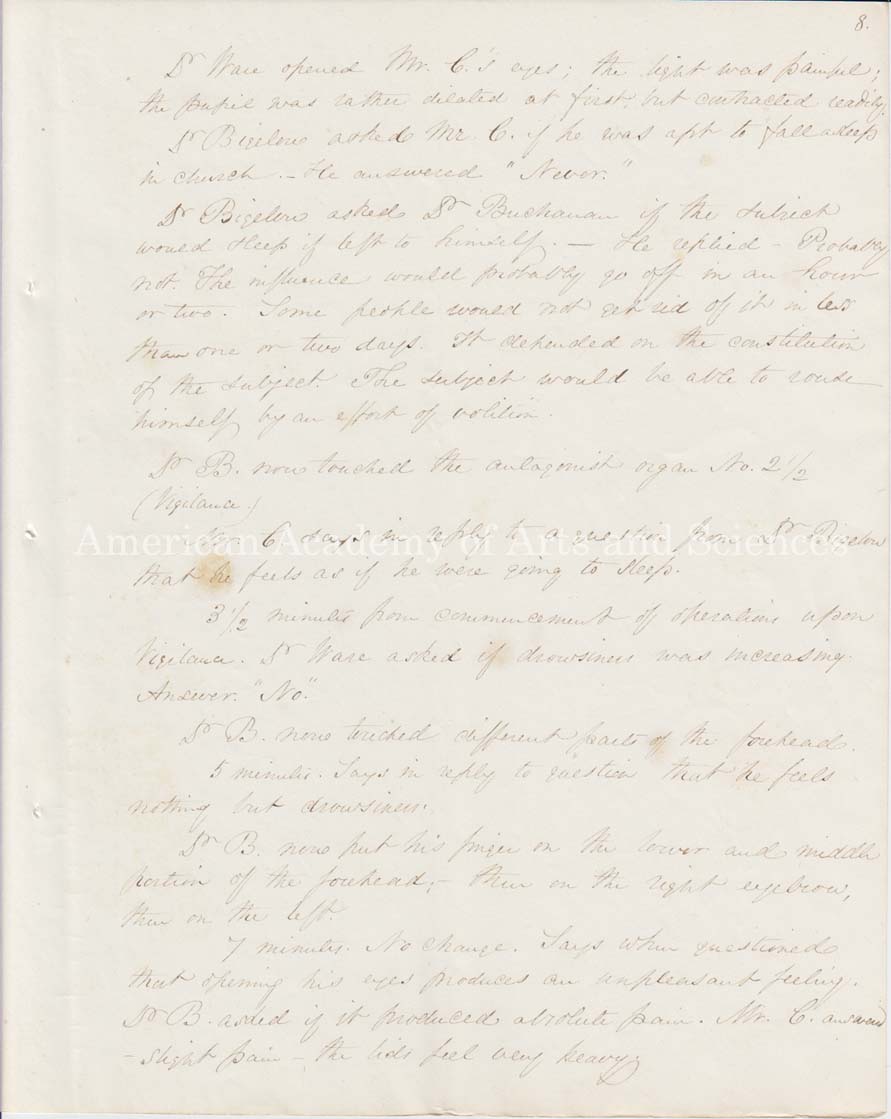 8.
Dr Ware opened Mr. C.'s eyes; the light was painful;
the pupil was rather dilated at first, but contracted readily.
Dr Bigelow asked Mr. C. if he was apt to fall asleep
in church. - He answered "Never."
Dr Bigelow asked Dr Buchanan if the subject
would sleep if left to himself. — He replied - Probably
not. The influence would probably go off in an hour
or two. Some people would not get rid of it in less
than one or two days. It depended on the constitution
of the subject. The subject would be able to rouse
himself by an effort of volition.
Dr B. now touched the antagonist organ No. 2 1/2
(Vigilance.)
Mr. C. says in reply to a question from Dr Bigelow
American Academy of Arts and Sciences
that he feels as if he were going to sleep.
3 1/2 minutes from commencement of operations upon
Vigilance. Dr Ware asked if drowsiness was increasing.
Answer. "No".
Dr B. now touched different parts of the forehead.
5 minutes. Says in reply to question that he feels
nothing but drowsiness.
Dr B. now put his finger on the lower and middle
portion of the forehead; - then on the right eyebrow,
then on the left.
7 minutes. No change. Says when questioned
that opening his eyes produces an unpleasant feeling.
Dr B. asked if it produced absolute pain. Mr. C. answered
- slight pain - the lids feel very heavy.